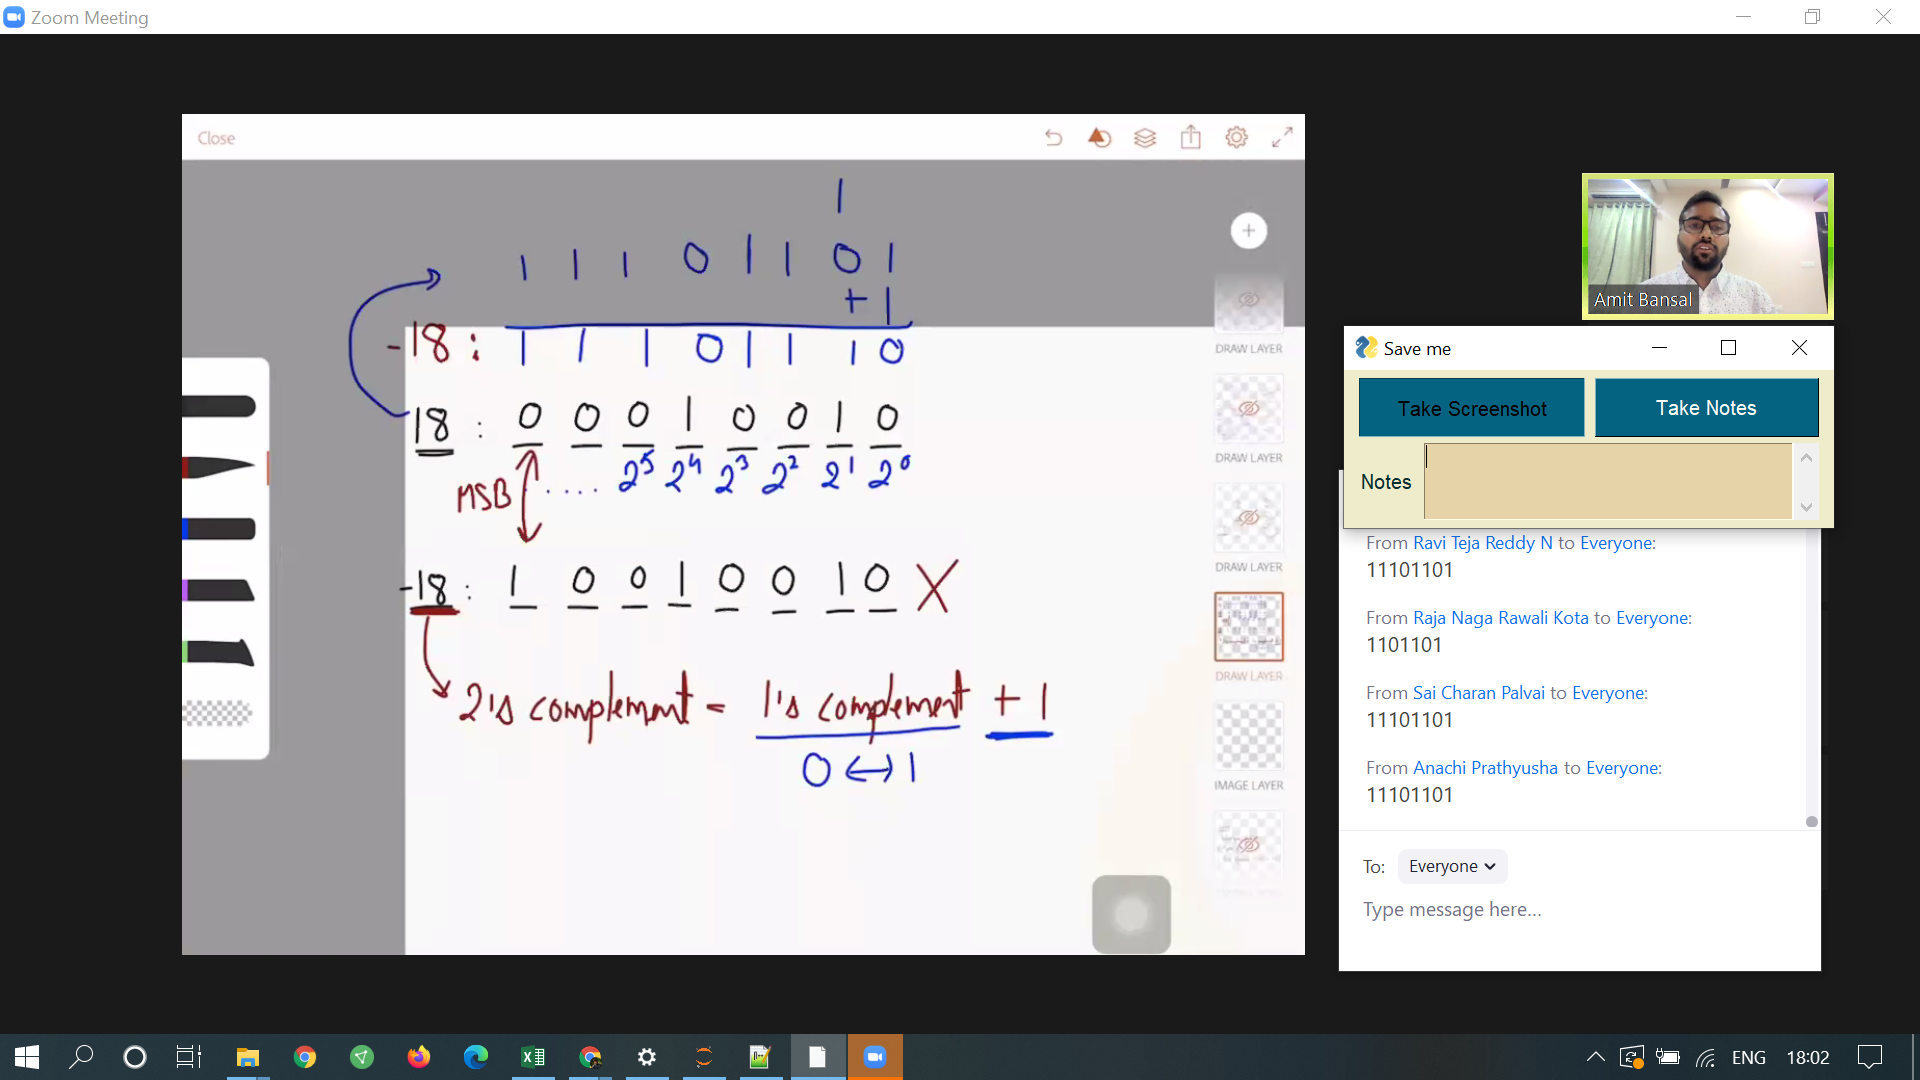 Zoom Meeting
Close
1
1 1 1 0 1 1 0 1
+ 1
-18 : 1 1 1 0 1 1 1 0
18 : 0 0 0 1 0 0 1 0
MSB .... 2^5 2^4 2^3 2^2 2^1 2^0
-18 : 1 0 0 1 0 0 1 0 X
2's complement = 1's complement + 1
0 ↔ 1
DRAW LAYER
DRAW LAYER
DRAW LAYER
DRAW LAYER
IMAGE LAYER
Amit Bansal
Save me
Take Screenshot
Take Notes
Notes
From Ravi Teja Reddy N to Everyone:
11101101
From Raja Naga Rawali Kota to Everyone:
1101101
From Sai Charan Palvai to Everyone:
11101101
From Anachi Prathyusha to Everyone:
11101101
To: Everyone
Type message here...
ENG 18:02